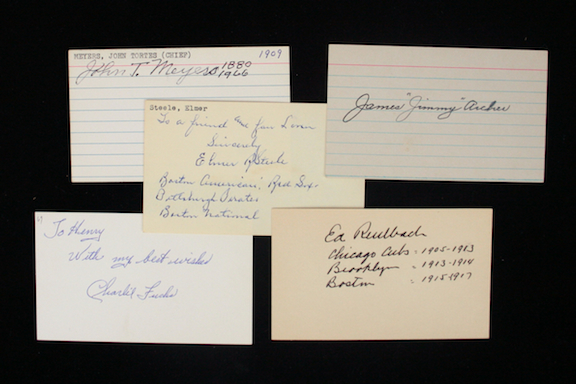 MEYERS, JOHN TORTES (CHIEF) 1909
John T. Meyers 1880
1966
James "Jimmy" Archer
Steele, Elmer
To a friend & fan
Sincerely
Elmer R Steele
Boston American, Red Sox
Pittsburgh Pirates
Boston National
To Henry
With my best wishes
Charlie Fuchs
Ed Reulbach
Chicago Cubs = 1905-1913
Brooklyn = 1913-1914
Boston = 1915-1917